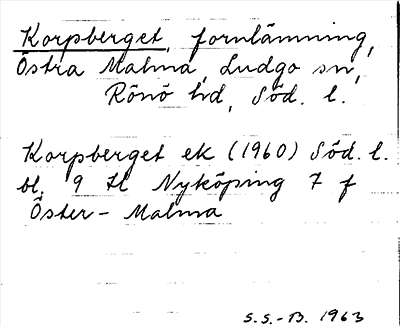 Korpberget, fornlämning,
Östra Malma, Ludgo sn,
Rönö hd, Söd. l.
Korpberget ek (1960) Söd. l.
bl. 9 H Nyköping 7 f
Öster-Malma
S.S.-B. 1963